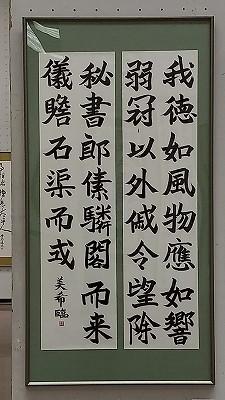 我徳如風物應如響
弱冠以外戚令望除
秘書郎傃驎閣而来
儀瞻石渠而式
美希臨